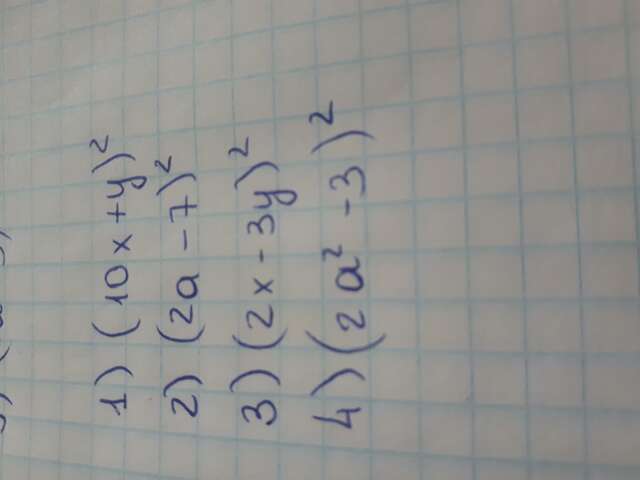 1) (10x+y)²
2) (2a-7)²
3) (2x-3y)²
4) (2a²-3)²